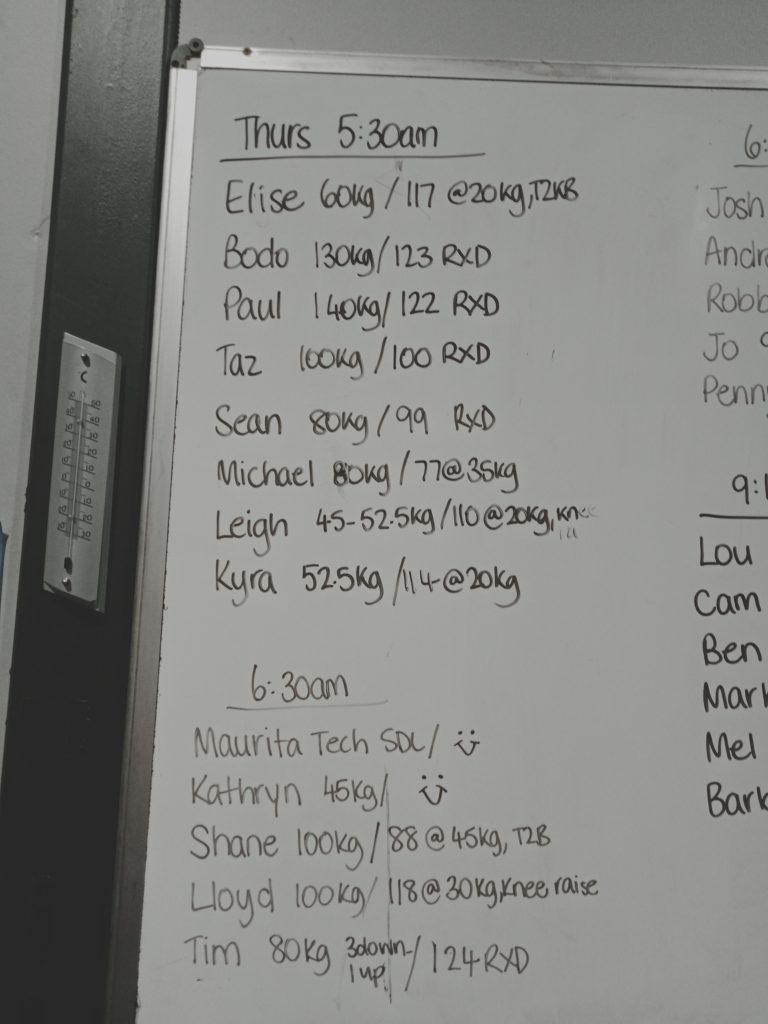 Thurs 5:30am
Elise 60kg/117 @20kg,T2KB
Bodo 130kg/123 RXD
Paul 140kg/122 RXD
Taz 100kg/100 RXD
Sean 80kg/99 RXD
Michael 80kg/77@35kg
Leigh 45-52.5kg/110@20kg,knee
Kyra 52.5kg/114@20kg
6:30am
Maurita Tech SDL/
Kathryn 45kg/
Shane 100kg/88@45kg, T2B
Lloyd 100kg/118@30kg,knee raise
Tim 80kg 3down-1up/124RXD
6:
Josh
Andr
Robb
Jo
Penny
9:1
Lou
Cam
Ben
Mark
Mel
Barb